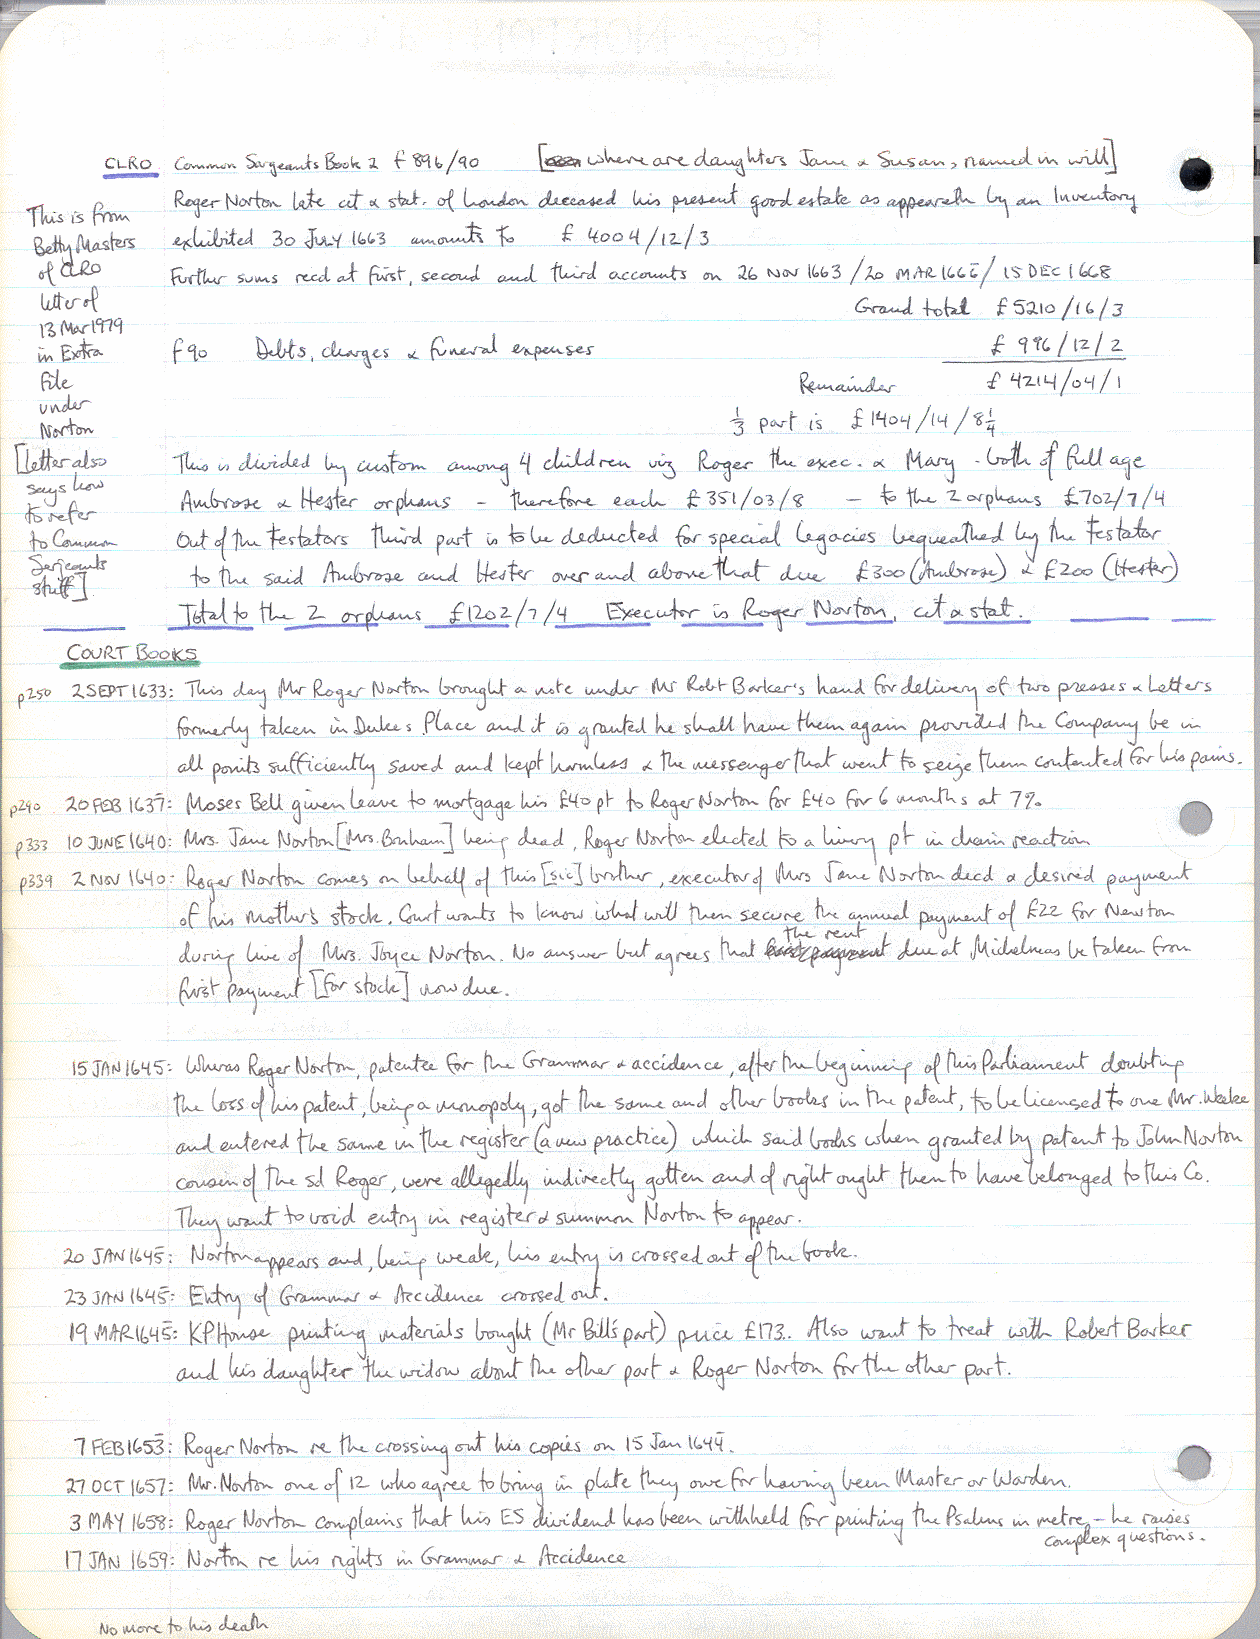 CLRO Common Sargeants Book 2 f 896/90 [where are daughters Jane & Susan, named in will]
Roger Norton late cit & stat. of London deceased his present good estate as appeareth by an Inventory
exhibited 30 JULY 1663 amounts to £ 4004/12/3
Further sums recd at first, second and third accounts on 26 NOV 1663 / 20 MAR 1666 / 15 DEC 1668
Grand total £5210/16/3
f 90 Debts, charges & funeral expenses £ 996/12/2
Remainder £ 4214/04/1
1/3 part is £1404/14/8 1/4
This is from
Betty Masters
of CLRO
letter of
13 Mar 1979
in Extra
File
under
Norton
[letter also
says how
to refer
to Common
Serjeants
stuff]
This is divided by custom among 4 children viz Roger the exec. & Mary - both of full age
Ambrose & Hester orphans - therefore each £351/03/8 - to the 2 orphans £702/7/4
Out of the testators third part is to be deducted for special legacies bequeathed by the testator
to the said Ambrose and Hester over and above that due £300 (Ambrose) & £200 (Hester)
Total to the 2 orphans £1202/7/4 Executor is Roger Norton, cit & stat.
COURT BOOKS
p250 2 SEPT 1633: This day Mr Roger Norton brought a note under Mr Robt Barker's hand for delivery of two presses & Letters
formerly taken in Dukes Place and it is granted he shall have them again provided the Company be in
all points sufficiently saved and kept harmless & the messenger that went to seize them contented for his pains.
p290 20 FEB 1637: Moses Bell given leave to mortgage his £40 pt to Roger Norton for £40 for 6 months at 7%
p333 10 JUNE 1640: Mrs. Jane Norton [Mrs. Bonham] being dead, Roger Norton elected to a livery pt in chain reaction
p339 2 NOV 1640: Roger Norton comes on behalf of this [sic] brother, executor of Mrs Jane Norton decd & desired payment
of his mother's stock. Court wants to know what will then secure the annual payment of £22 for Newton
during live of Mrs. Joyce Norton. No answer but agrees that the rent due at Michelmas be taken from
first payment [for stock] now due.
15 JAN 1645: Wheras Roger Norton, patentee for the Grammar & accidence, after the beginning of this Parliament doubting
the loss of his patent, being a monopoly, got the same and other books in the patent, to be licensed to one Mr. Weeke
and entered the same in the register (a new practice) which said books when granted by patent to John Norton
cousin of the sd Roger, were allegedly indirectly gotten and of right ought then to have belonged to this Co.
They want to void entry in register & summon Norton to appear.
20 JAN 1645: Norton appears and, being weak, his entry is crossed out of the book.
23 JAN 1645: Entry of Grammar & Accidence crossed out.
19 MAR 1645: KPHouse printing materials bought (Mr Bill's part) price £173. Also want to treat with Robert Barker
and his daughter the widow about the other part & Roger Norton for the other part.
7 FEB 1653: Roger Norton re the crossing out his copies on 15 Jan 1644.
27 OCT 1657: Mr. Norton one of 12 who agree to bring in plate they owe for having been Master or Warden.
3 MAY 1658: Roger Norton complains that his ES dividend has been withheld for printing the Psalms in metre - he raises
complex questions.
17 JAN 1659: Norton re his rights in Grammar & Accidence
No more to his death